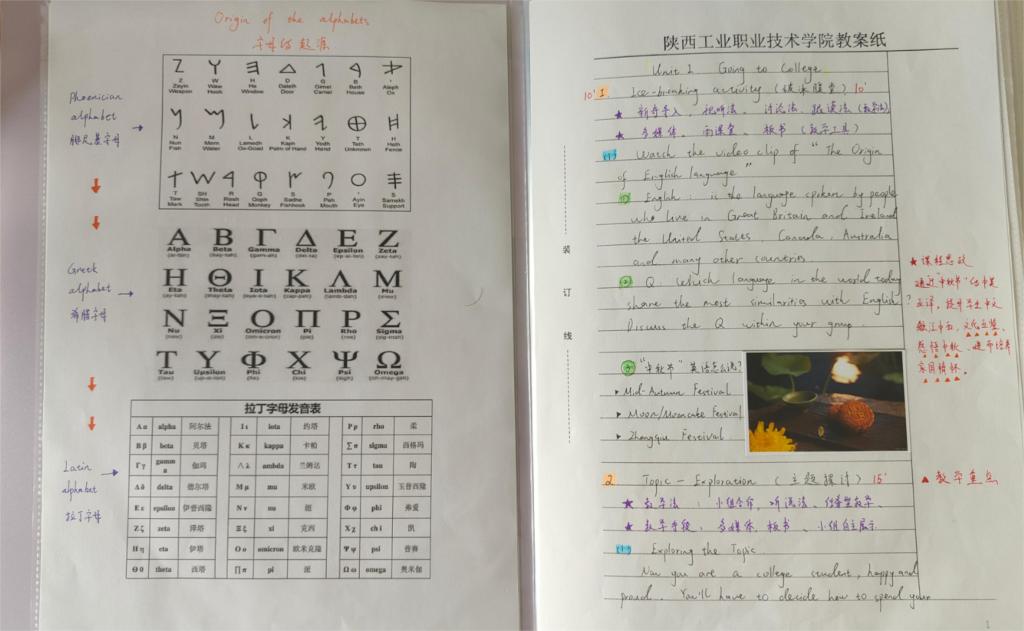 Origin of the alphabets
字母的起源
Phoenician
alphabet
腓尼基字母
Z Zayin Weapon
W Waw Hook
H He Window
D Daleth Door
G Gimel Camel
B Beth House
A Aleph Ox
N Nun Fish
M Mem Water
L Lamedh Ox-Goad
K Kaph Palm of Hand
Y Yodh Hand
T Teth Unknown
H Heth Fence
T Taw Mark
SH Shin Tooth
R Resh Head
Q Qoph Monkey
S Sadhe Fishhook
P Peh Mouth
Ayin Eye
S Samekh Support
Greek
alphabet
希腊字母
Α Β Γ Δ Ε Ζ
Alpha Beta Gamma Delta Epsilon Zeta
Η Θ Ι Κ Λ Μ
Eta Theta Iota Kappa Lambda Mu
Ν Ξ Ο Π Ρ Σ
Nu Xi Omicron Pi Rho Sigma
Τ Υ Φ Χ Ψ Ω
Tau Upsilon Phi Chi Psi Omega
Latin
alphabet
拉丁字母
拉丁字母发音表
Α α alpha 阿尔法 Ι ι iota 约塔 Ρ ρ rho 柔
Β β beta 贝塔 Κ κ kappa 卡帕 ∑ σ sigma 西格玛
Γ γ gamma 伽玛 ∧ λ ambda 兰姆达 Τ τ tau 陶
Δ δ delta 德尔塔 Μ μ mu 米欧 Υ υ upsilon 玉普西隆
Ε ε epsilon 伊普西隆 Ν ν nu 纽 Φ φ phi 弗爱
Ζ ζ zeta 泽塔 Ξ ξ xi 克西 Χ χ chi 凯
Η η eta 伊塔 Ο ο omicron 欧米克隆 Ψ ψ psi 普赛
Θ θ theta 西塔 ∏ π pi 派 Ω ω omega 奥米伽
陕西工业职业技术学院教案纸
Unit 1 Going to College
10' 1. Ice-breaking activity (破冰限室) 10'
★ 新奇导入、视听法、讨论法、
★ 多媒体、雨课堂、板书 (教学工具)
(1) Watch the video clip of "The Origin
of English language"
① English: is the language spoken by people
who live in Great Britain and Ireland
the United States, Canada, Australia
and many other countries
② Q. Which language in the world today
share the most similarities with English?
Discuss the Q within your group.
③ "中秋节" 英语怎么说?
▸ Mid-Autumn Festival
▸ Moon/Mooncake Festival
▸ Zhongqiu Festival
装
订
线
★ 课程思政
通过"中秋节"
家国情怀。
2. Topic-Exploration (主题探讨) 15'
▲ 教学重点
★ 教学法: 小组合作、听说法、任务型教学、
★ 教学手段: 多媒体、板书、小组自主展示
(1) Exploring the Topic
Now you are a college student, happy and
proud. You'll have to decide how to spend your
1